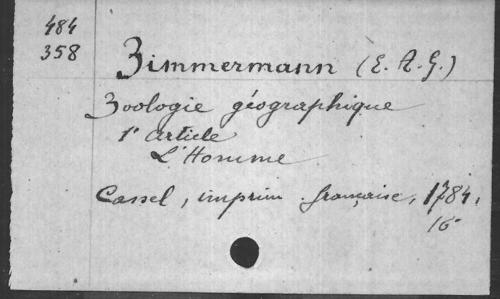 484
358
Zimmermann (E. A. G.)
Zoologie géographique
1r article
L'Homme
Cassel, imprim. française, 1784,
16-